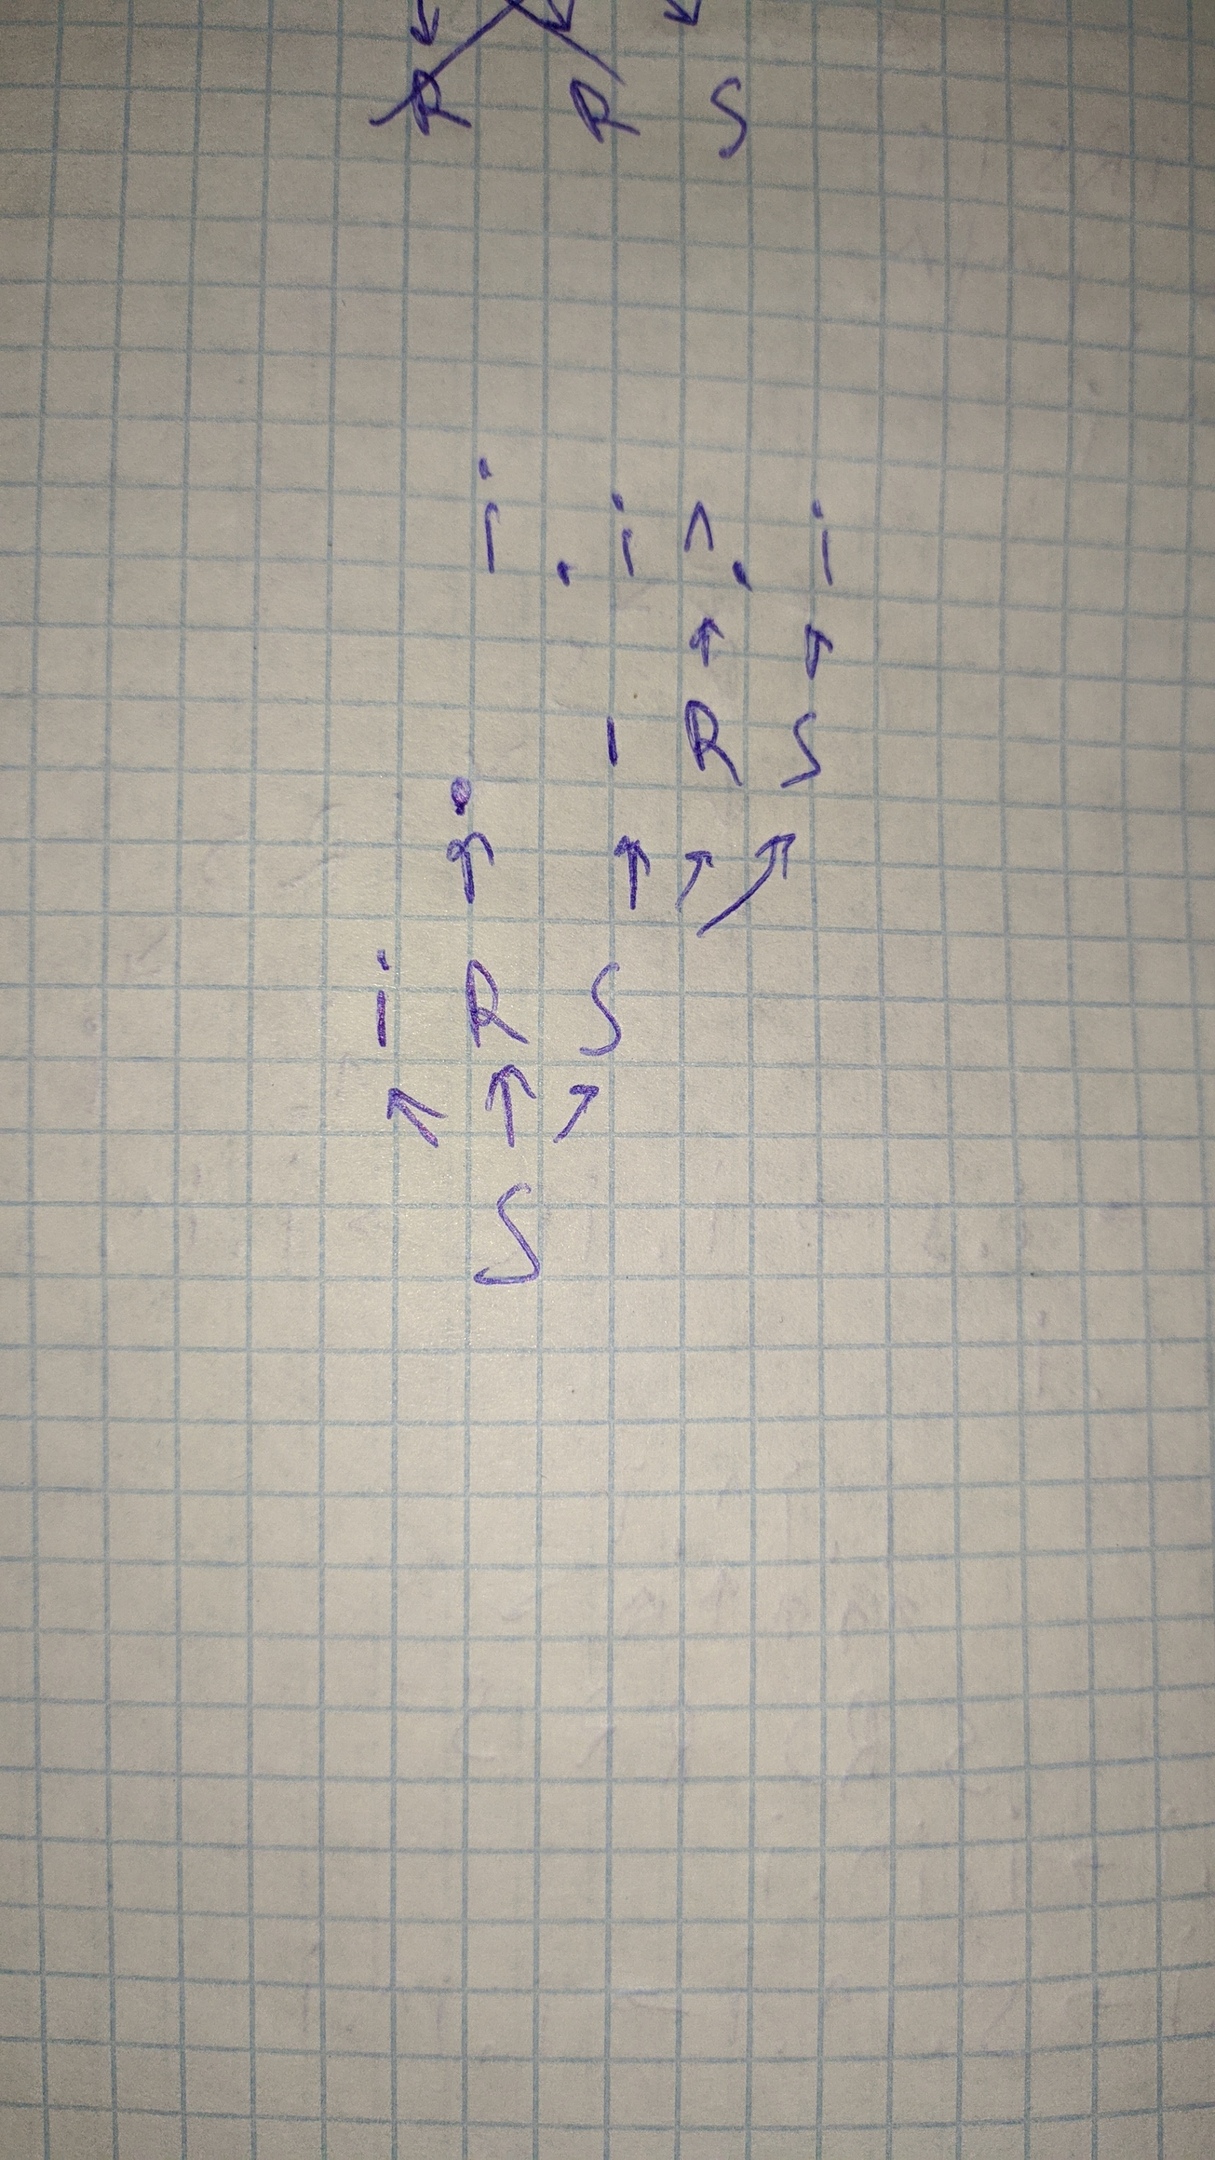 R R S
i . i ^ . i
↑ ↑
i R S
.
↑ ↑ ↗ ↗
i R S
↖ ↑ ↗
S